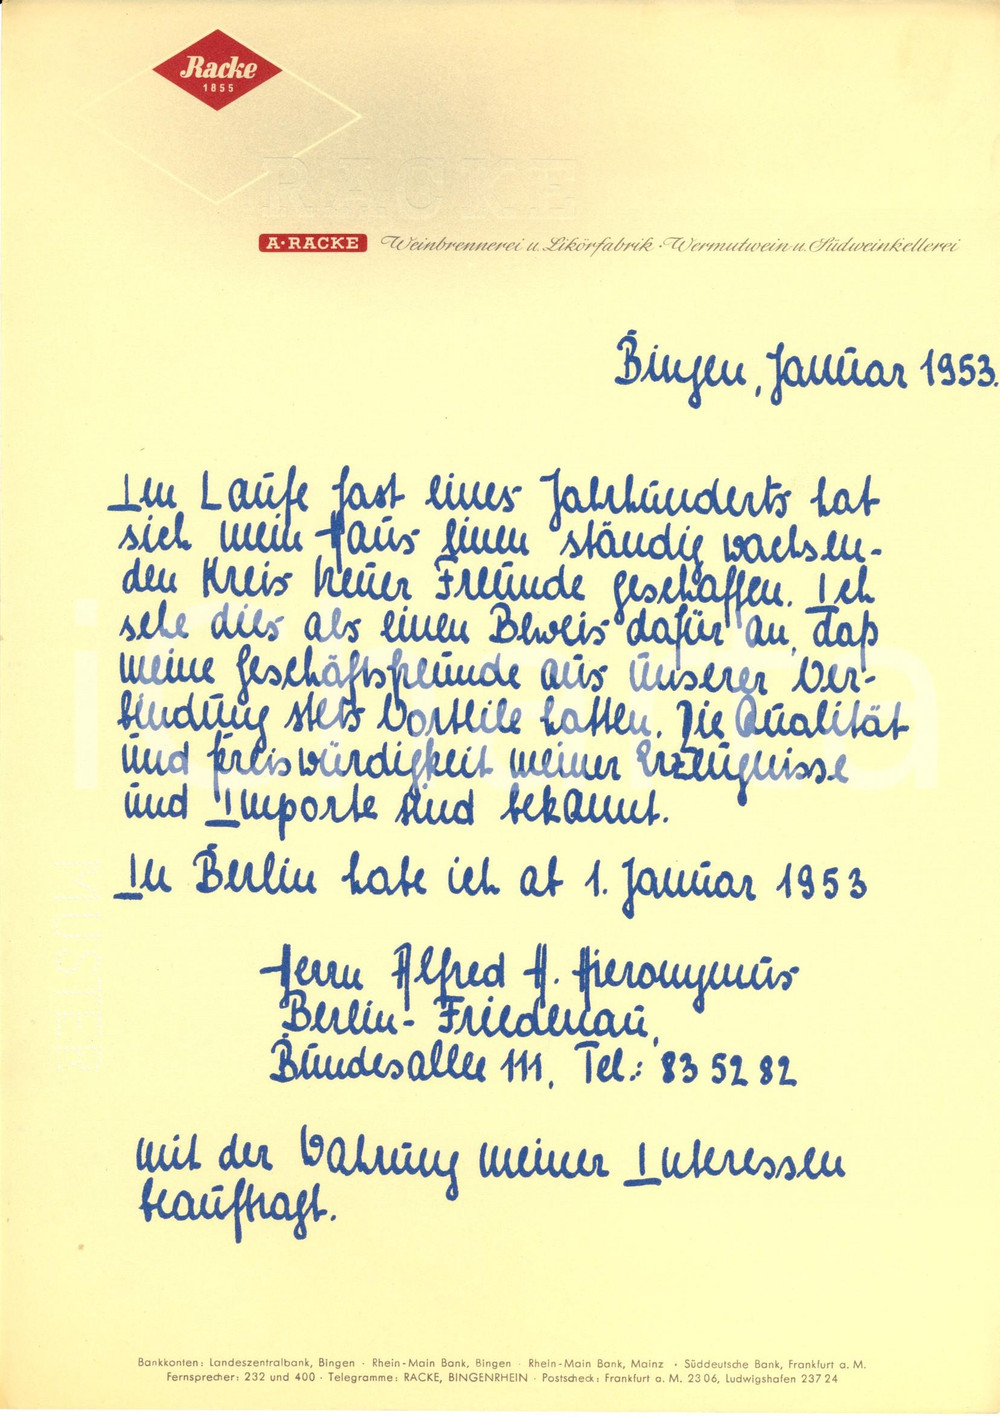 Racke
1855
RACKE
A·RACKE Weinbrennerei u. Likörfabrik · Wermutwein u. Südweinkellerei
Bingen, Januar 1953.
Im Laufe fast eines Jahrhunderts hat
sich mein Haus einen ständig wachsen-
den Kreis treuer Freunde geschaffen. Ich
sehe dies als einen Beweis dafür an, daß
meine Geschäftsfreunde aus unserer Ver-
bindung stets Vorteile hatten. Die Qualität
und Preiswürdigkeit meiner Erzeugnisse
und Importe sind bekannt.
In Berlin habe ich ab 1. Januar 1953
Herrn Alfred H. Hieronymus
Berlin-Friedenau,
Bundesallee 111, Tel.: 83 52 82
mit der Wahrung meiner Interessen
beauftragt.
MUSTER
Bankkonten: Landeszentralbank, Bingen · Rhein-Main Bank, Bingen · Rhein-Main Bank, Mainz · Süddeutsche Bank, Frankfurt a. M.
Fernsprecher: 232 und 400 · Telegramme: RACKE, BINGENRHEIN · Postscheck: Frankfurt a. M. 23 06, Ludwigshafen 237 24